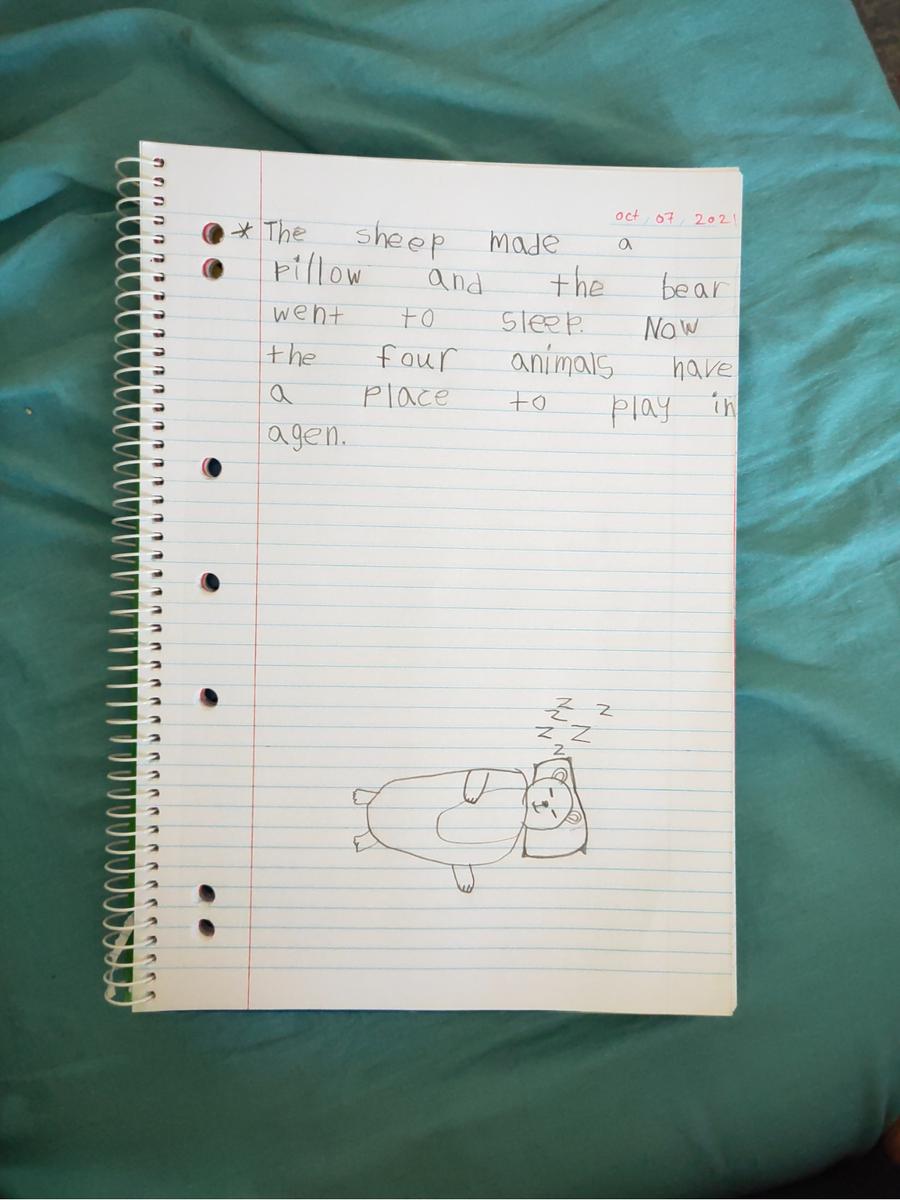 oct, 07, 2021
* The sheep made a
pillow and the bear
went to sleep. Now
the four animals have
a place to play in
agen.
z
z z
z z
z